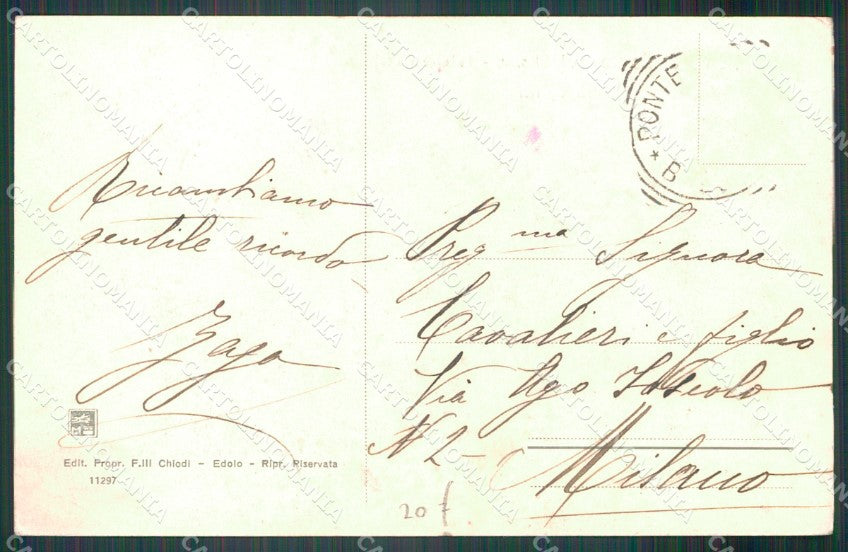 Ricambiamo
gentile ricordo
Zago
Edit. Propr. F.lli Chiodi – Edolo - Ripr. Riservata
11297
PONTE
* B
Preg ma Signora
Cavalieri e figlio
Via Ugo Foscolo
N 2 -
Milano
20
CARTOLINOMANIA